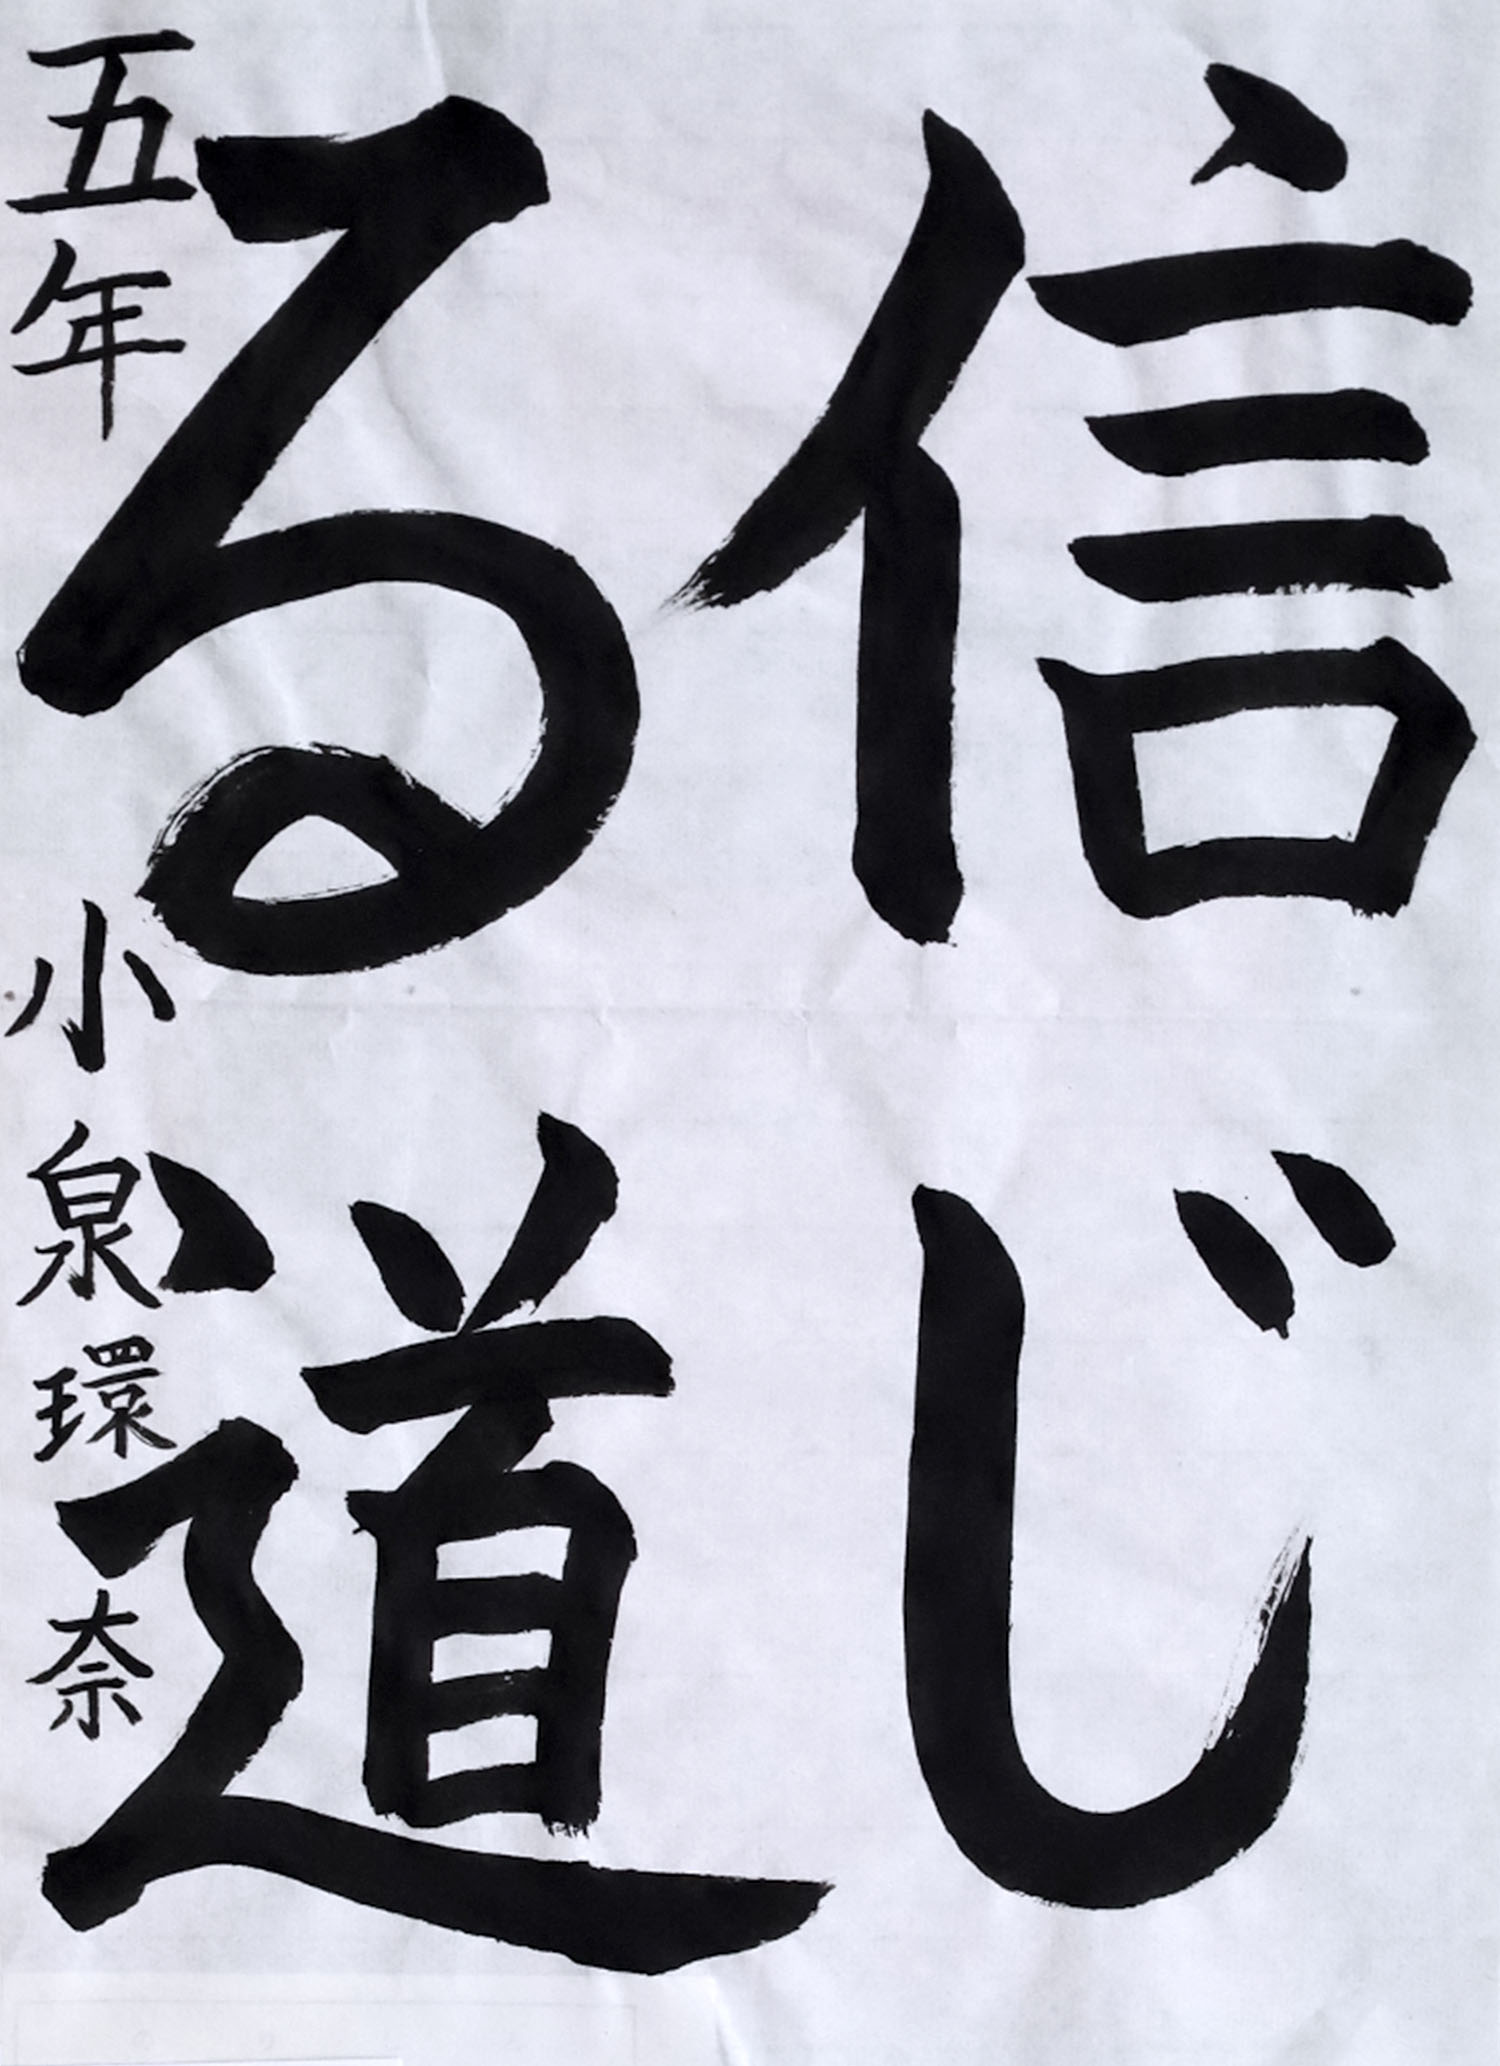 信じ
る道
五年 小泉環奈